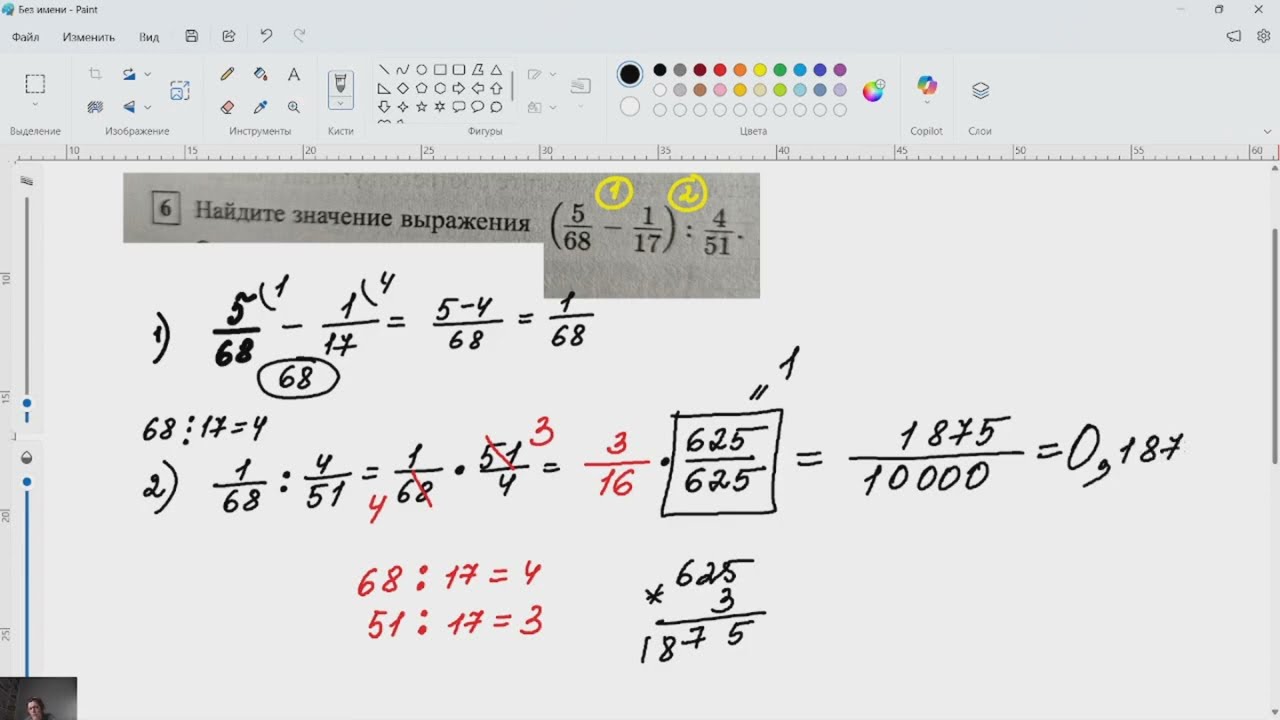 Без имени - Paint
Файл Изменить Вид
Выделение Изображение Инструменты Кисти Фигуры Цвета Copilot Слои
10 15 20 25 30 35 40 45 50 55 60
10
15
20
25
6 Найдите значение выражения (5/68 − 1/17) : 4/51.
1 2
1) 5/68 (1 − 1/17 (4 = 5−4/68 = 1/68
68
68:17=4
2) 1/68 : 4/51 = 1/68 4 · 51/4 3 = 3/16 · 625/625 = 1875/10000 = 0,187
= 1
68 : 17 = 4
51 : 17 = 3
625
* 3
1875